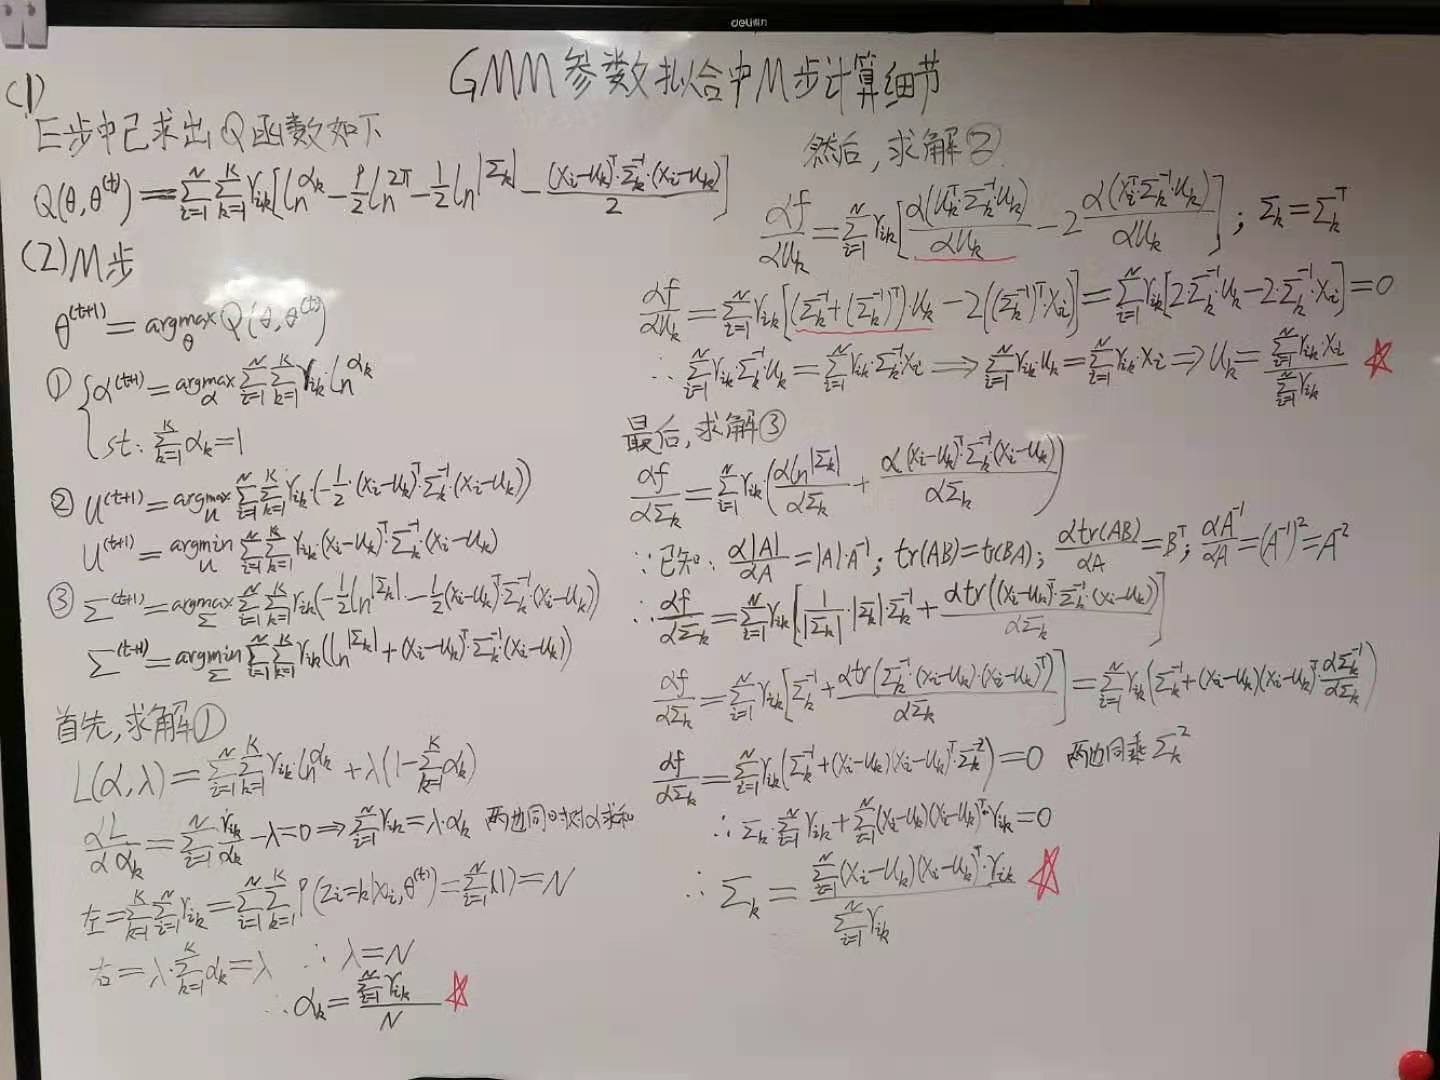 deli得力
GMM参数拟合中M步计算细节
(1)
E步中已求出Q函数如下
Q(θ,θ^(t)) = Σ_{i=1}^N Σ_{k=1}^K γ_ik [ln^{α_k} - P/2 ln^{2π} - 1/2 ln^{|Σ_k|} - (x_i-u_k)^T·Σ_k^{-1}·(x_i-u_k)/2]
(2)M步
θ^(t+1) = argmax_θ Q(θ,θ^(t))
① { α^(t+1) = argmax_α Σ_{i=1}^N Σ_{k=1}^K γ_ik·ln^{α_k}
st: Σ_{k=1}^K α_k = 1
② u^(t+1) = argmax_u Σ_{i=1}^N Σ_{k=1}^K γ_ik·(-1/2·(x_i-u_k)^T·Σ_k^{-1}·(x_i-u_k))
u^(t+1) = argmin_u Σ_{i=1}^N Σ_{k=1}^K γ_ik·(x_i-u_k)^T·Σ_k^{-1}·(x_i-u_k)
③ Σ^(t+1) = argmax_Σ Σ_{i=1}^N Σ_{k=1}^K γ_ik(-1/2 ln^{|Σ_k|} - 1/2(x_i-u_k)^T·Σ_k^{-1}·(x_i-u_k))
Σ^(t+1) = argmin_Σ Σ_{i=1}^N Σ_{k=1}^K γ_ik(ln^{|Σ_k|} + (x_i-u_k)^T·Σ_k^{-1}(x_i-u_k))
首先,求解①
L(α,λ) = Σ_{i=1}^N Σ_{k=1}^K γ_ik·ln^{α_k} + λ(1-Σ_{k=1}^K α_k)
αL/αα_k = Σ_{i=1}^N γ_ik/α_k - λ = 0 ⇒ Σ_{i=1}^N γ_ik = λ·α_k 两边同时对α求和
左 = Σ_{k=1}^K Σ_{i=1}^N γ_ik = Σ_{i=1}^N Σ_{k=1}^K P(z_i=k|x_i,θ^(t)) = Σ_{i=1}^N (1) = N
右 = λ·Σ_{k=1}^K α_k = λ ∴ λ = N
∴ α_k = Σ_{i=1}^N γ_ik / N ☆
然后,求解②
αf/αu_k = Σ_{i=1}^N γ_ik [α(u_k^T·Σ_k^{-1}·u_k)/αu_k - 2 α(x_i^T·Σ_k^{-1}·u_k)/αu_k] ; Σ_k = Σ_k^T
αf/αu_k = Σ_{i=1}^N γ_ik [(Σ_k^{-1}+(Σ_k^{-1})^T)·u_k - 2((Σ_k^{-1})^T·x_i)] = Σ_{i=1}^N γ_ik [2·Σ_k^{-1}·u_k - 2·Σ_k^{-1}·x_i] = 0
∴ Σ_{i=1}^N γ_ik·Σ_k^{-1}·u_k = Σ_{i=1}^N γ_ik·Σ_k^{-1}x_i ⇒ Σ_{i=1}^N γ_ik·u_k = Σ_{i=1}^N γ_ik·x_i ⇒ u_k = Σ_{i=1}^N γ_ik·x_i / Σ_{i=1}^N γ_ik ☆
最后,求解③
αf/αΣ_k = Σ_{i=1}^N γ_ik·(αln^{|Σ_k|}/αΣ_k + α(x_i-u_k)^T·Σ_k^{-1}(x_i-u_k)/αΣ_k)
∵已知: α|A|/αA = |A|·A^{-1}; tr(AB)=tr(BA); αtr(AB)/αA = B^T; αA^{-1}/αA = (A^{-1})^2 = A^{-2}
∴ αf/αΣ_k = Σ_{i=1}^N γ_ik [1/|Σ_k|·|Σ_k|·Σ_k^{-1} + αtr((x_i-u_k)^T·Σ_k^{-1}·(x_i-u_k))/αΣ_k]
αf/αΣ_k = Σ_{i=1}^N γ_ik [Σ_k^{-1} + αtr(Σ_k^{-1}·(x_i-u_k)·(x_i-u_k)^T)/αΣ_k] = Σ_{i=1}^N γ_ik (Σ_k^{-1}+(x_i-u_k)(x_i-u_k)^T·αΣ_k^{-1}/αΣ_k)
αf/αΣ_k = Σ_{i=1}^N γ_ik (Σ_k^{-1}+(x_i-u_k)(x_i-u_k)^T·Σ_k^{-2}) = 0 两边同乘Σ_k^2
∴ Σ_k·Σ_{i=1}^N γ_ik + Σ_{i=1}^N (x_i-u_k)(x_i-u_k)^T·γ_ik = 0
∴ Σ_k = Σ_{i=1}^N (x_i-u_k)(x_i-u_k)^T·γ_ik / Σ_{i=1}^N γ_ik ☆